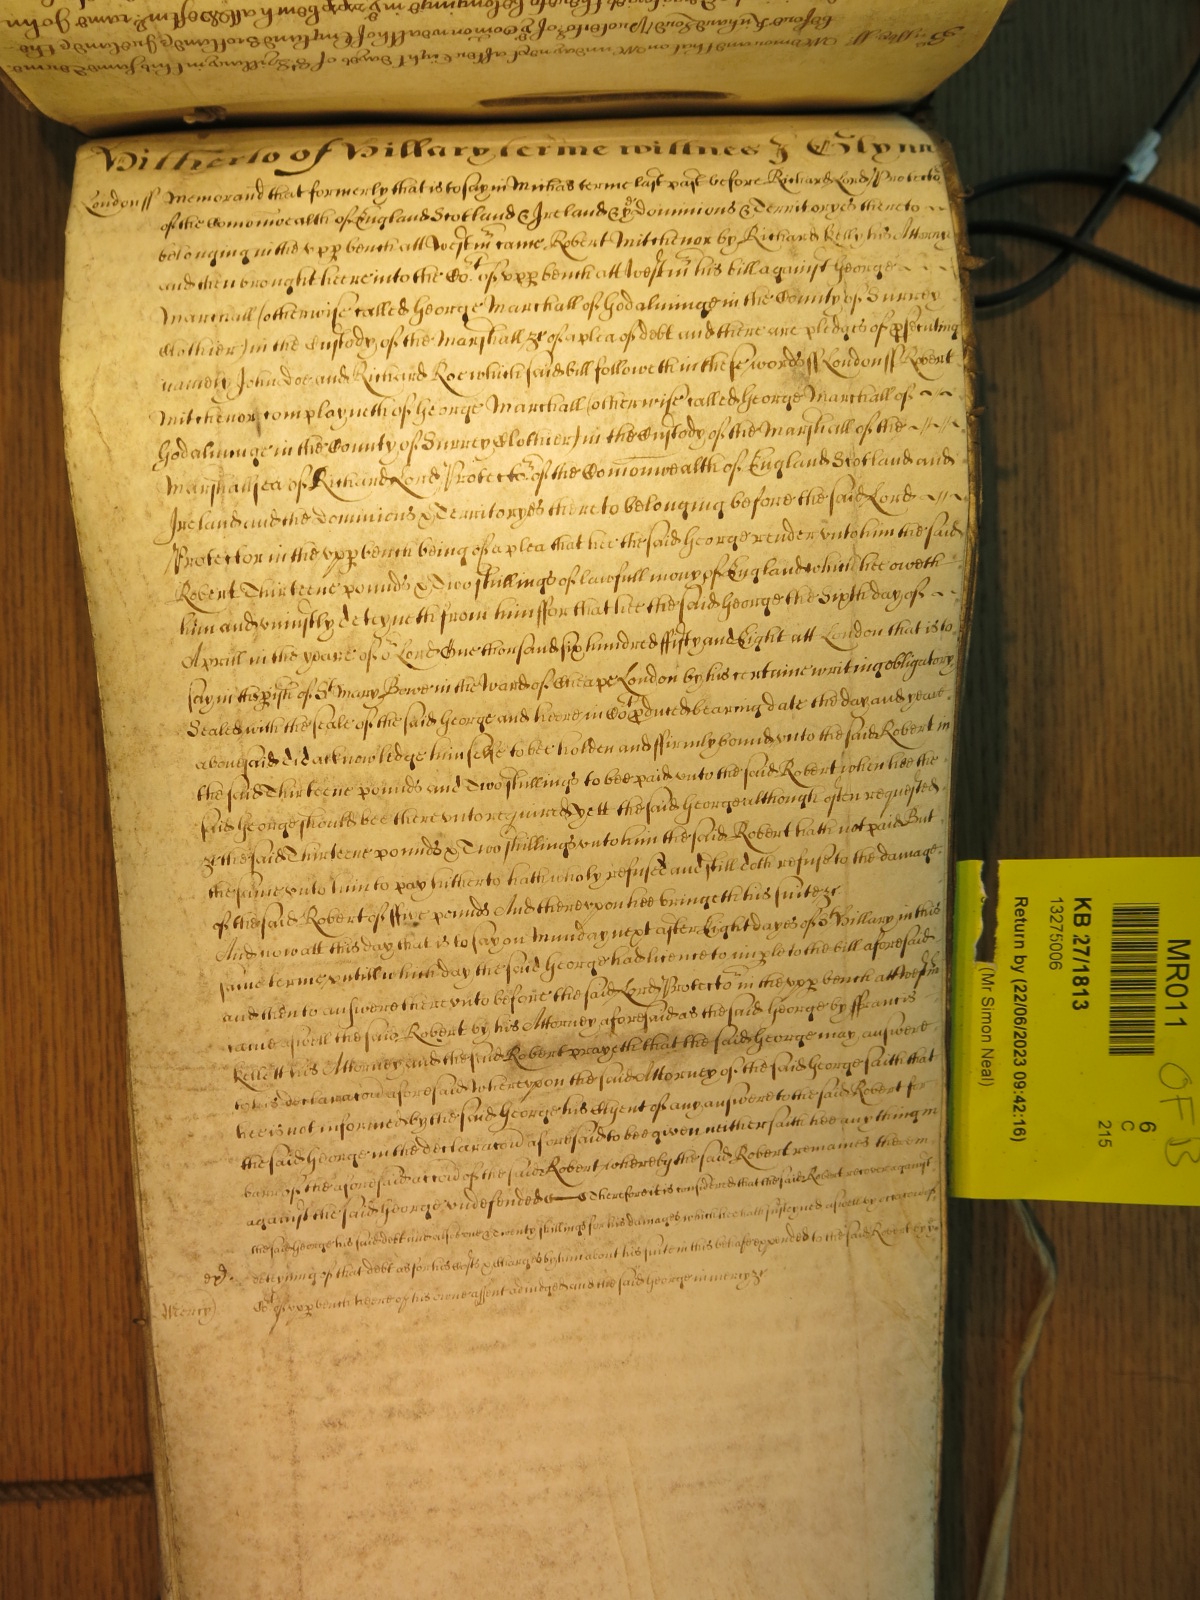 Hitherto of Hillary terme wittnes J Glynn
London ss Memorand that formerly that is to say in Michas terme last past before Richard Lord Protector
of the Comonwealth of England Scotland & Ireland & ye Dominions & Territoryes thereto
belonging in the vpp bench att Westmr came Robert Mitchenor by Richard Kelly his Attorny
and then brought heere into the Cort of vpp bench att Westmr his bill against George
Marchall (otherwise called George Marchall of Godalminge in the County of Surrey
Clothier) in the Custody of the Marshall &c of a plea of debt and there are pledges of psecuting
namely John Doe and Richard Roe which said bill followeth in these words ss London ss Robert
Mitchenor complayneth of George Marchall (otherwise called George Marchall of
Godalminge in the County of Surrey Clothier) in the Custody of the Marshall of the
Marshallsea of Richard Lord Protector of the Comonwealth of England Scotland and
Ireland and the Dominions & Territoryes thereto belonging before the said Lord
Protector in the vpp bench being of a plea that hee the said George render vnto him the said
Robert Thirteene pounds & Two shillings of lawfull mony of England which hee oweth
him and vniustly deteyneth from him ffor that hee the said George the Sixth day of
Aprill in the yeare of or Lord One thousand six hundred ffifty and Eight att London that is to
say in the pish of St Mary Bowe in the Ward of Cheape London by his certaine writing obligatory
Sealed with the seale of the said George and heere in Cort pduced bearing date the day and yeare
abovesaid did acknowledge himselfe to bee holden and ffirmly bound vnto the said Robert in
the said Thirteene pounds and Two shillings to bee paid vnto the said Robert when hee the
said George should bee therevnto required yett the said George although often requested
&c the said Thirteene pounds & Two shillings vnto him the said Robert hath not paid But
the same vnto him to pay hitherto hath wholy refused and still doth refuse to the damage
of the said Robert of ffive pounds And therevpon hee bringeth his suite &c
And now att this day that is to say on Munday next after Eight dayes of St Hillary in this
same terme vntill which day the said George had licence to imple to the bill aforesaid
and then to answere therevnto before the said Lord Protector in the vpp bench att Westmr
came aswell the said Robert by his Attorney aforesaid as the said George by ffrancis
Kellett his Attorney and the said Robert prayeth that the said George may answere
to his declaracon aforesaid wherevpon the said Attorney of the said George saith that
hee is not informed by the said George his Clyent of any answere to the said Robert for
the said George in the declaracon aforesaid to bee given neither saith hee any thing in
barr of the aforesaid accon of the said Robert whereby the said Robert remaines therein
against the said George vndefended Therefore it is considered that the said Robert recover against
the said George his said debt and alsoe Twenty shillings for his damages which hee hath susteyned aswell by occacon of
deteyning of that debt as for his costs & charges by him about his suite in this behalfe expended to the said Robert by ye
Cort of vpp bench heere of his owne assent adiudged and the said George in mercy &c
Mercy
MR011
6
C
215
KB 27/1813
13275006
Return by (22/06/2023 09:42:16)
(Mr Simon Neal)